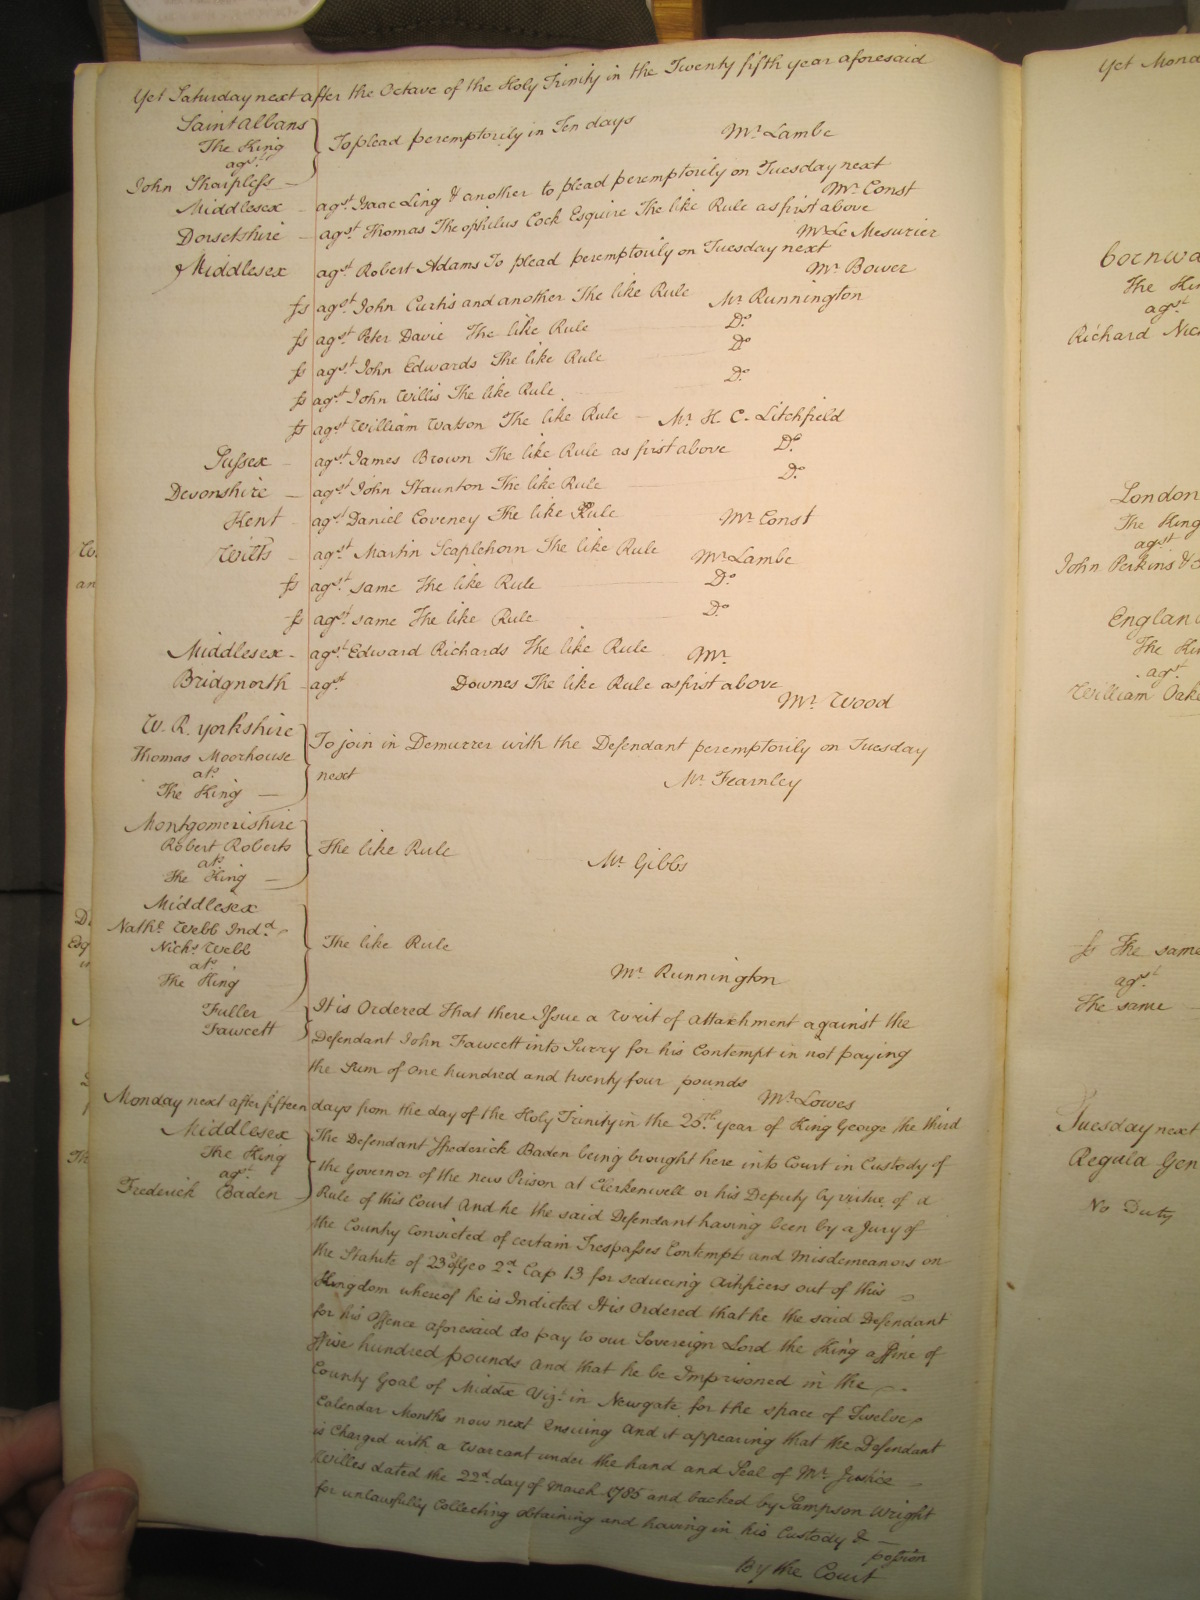 Yet Saturday next after the Octave of the Holy Trinity in the Twenty fifth year aforesaid
Saint Albans
The King
agst
John Sharpless
To plead peremptorily in Ten days
Mr Lambe
Middlesex agst Isaac Ling & another to plead peremptorily on Tuesday next
Mr Const
Dorsetshire agst Thomas Theophilus Cock Esquire The like Rule as first above
Mr Le Mesurier
Middlesex agst Robert Adams To plead peremptorily on Tuesday next
Mr Bower
ss agst John Curtis and another The like Rule Mr Runnington
ss agst Peter Davie The like Rule Do
ss agst John Edwards The like Rule Do
ss agst John Willis The like Rule Do
ss agst William Watson The like Rule Mr H. C. Litchfield
Sussex agst James Brown The like Rule as first above Do
Devonshire agst John Staunton The like Rule Do
Kent agst Daniel Coveney The like Rule Mr Const
Wilts agst Martin Scaplehorn The like Rule Mr Lambe
ss agst same The like Rule Do
ss agst same The like Rule Do
Middlesex agst Edward Richards The like Rule Mr
Bridgnorth agst Downes The like Rule as first above
Mr Wood
W. R. Yorkshire
Thomas Moorhouse
ats
The King
To join in Demurrer with the Defendant peremptorily on Tuesday
next Mr Fearnley
Montgomerishire
Robert Roberts
ats
The King
The like Rule
Mr Gibbs
Middlesex
Nathl Webb Indd
Nichs Webb
ats
The King
The like Rule
Mr Runnington
Fuller
Fawcett
It is Ordered That there Issue a Writ of Attachment against the
Defendant John Fawcett into Surry for his Contempt in not paying
the Sum of one hundred and twenty four pounds
Mr Lowes
Monday next after fifteen days from the day of the Holy Trinity in the 25th year of King George the third
Middlesex
The King
agst
Frederick Baden
The Defendant Frederick Baden being brought here into Court in Custody of
the Governor of the new Prison at Clerkenwell or his Deputy by virtue of a
Rule of this Court And he the said Defendant having been by a Jury of
the Country convicted of certain Trespasses Contempts and Misdemeanors on
the Statute of 23d of Geo 2d Cap 13 for seducing Artificers out of this
Kingdom whereof he is Indicted It is Ordered that he the said Defendant
for his Offence aforesaid do pay to our Sovereign Lord the King a ffine of
ffive hundred pounds And that he be Imprisoned in the
County Goal of Middx Vizt in Newgate for the space of Twelve
Calendar Months now next Ensuing And it appearing that the Defendant
is Charged with a Warrant under the hand and Seal of Mr Justice
Willes dated the 22d day of March 1785 and backed by Sampson Wright
for unlawfully Collecting obtaining and having in his Custody &
possion
By the Court
Yet Mond
Cornwa
The Kin
agst
Richard Nic
London
The King
agst
John Perkins &
England
The Kin
agst
William Oak
ss The same
agst
The same
Tuesday next
Regula Gen
No Duty